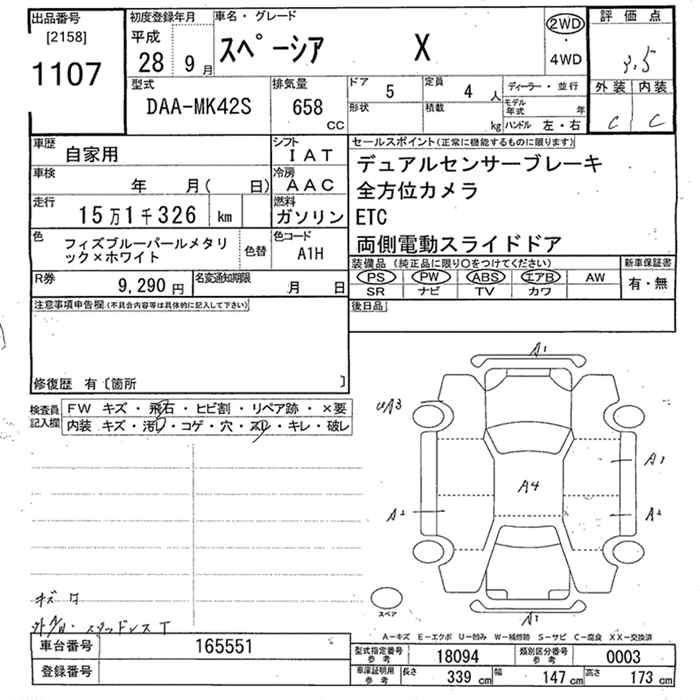 出品番号
[2158]
1107
初度登録年月
平成
28 9 月
車名・グレード
スペーシア X
2WD
・
4WD
評価点
3.5
外装 内装
C C
型式
DAA-MK42S
排気量
658
CC
ドア
5
定員
4 人
形状
積載
kg
ディーラー・並行
モデル年式 年
ハンドル 左・右
車歴
自家用
シフト
IAT
車検
年 月( 日)
冷房
AAC
走行
15万1千326 km
燃料
ガソリン
色
フィズブルーパールメタリ
ック×ホワイト
色替
色コード
A1H
R券
9,290 円
名変通知期限
月 日
セールスポイント(正常に機能するものに限ります)
デュアルセンサーブレーキ
全方位カメラ
ETC
両側電動スライドドア
装備品(純正品に限り○をつけてください)
新車保証書
PS PW ABS エアB AW
SR ナビ TV カワ
有・無
注意事項申告欄(不具合内容等は具体的に記入して下さい)
後日品
修復歴 有〔箇所 〕
検査員
記入欄
FW キズ・飛石・ヒビ割・リペア跡・×要
内装 キズ・汚れ・コゲ・穴・スレ・キレ・破レ
A1
UA3
A1
A4
A2
A2
A1
スペア
A-キズ E-エクボ U-凹み W-補修跡 S-サビ C-腐食 XX-交換済
車台番号
165551
登録番号
型式指定番号
参考
18094
類別区分番号
参考
0003
車庫証明用
参考
長さ
339 cm
幅
147 cm
高さ
173 cm